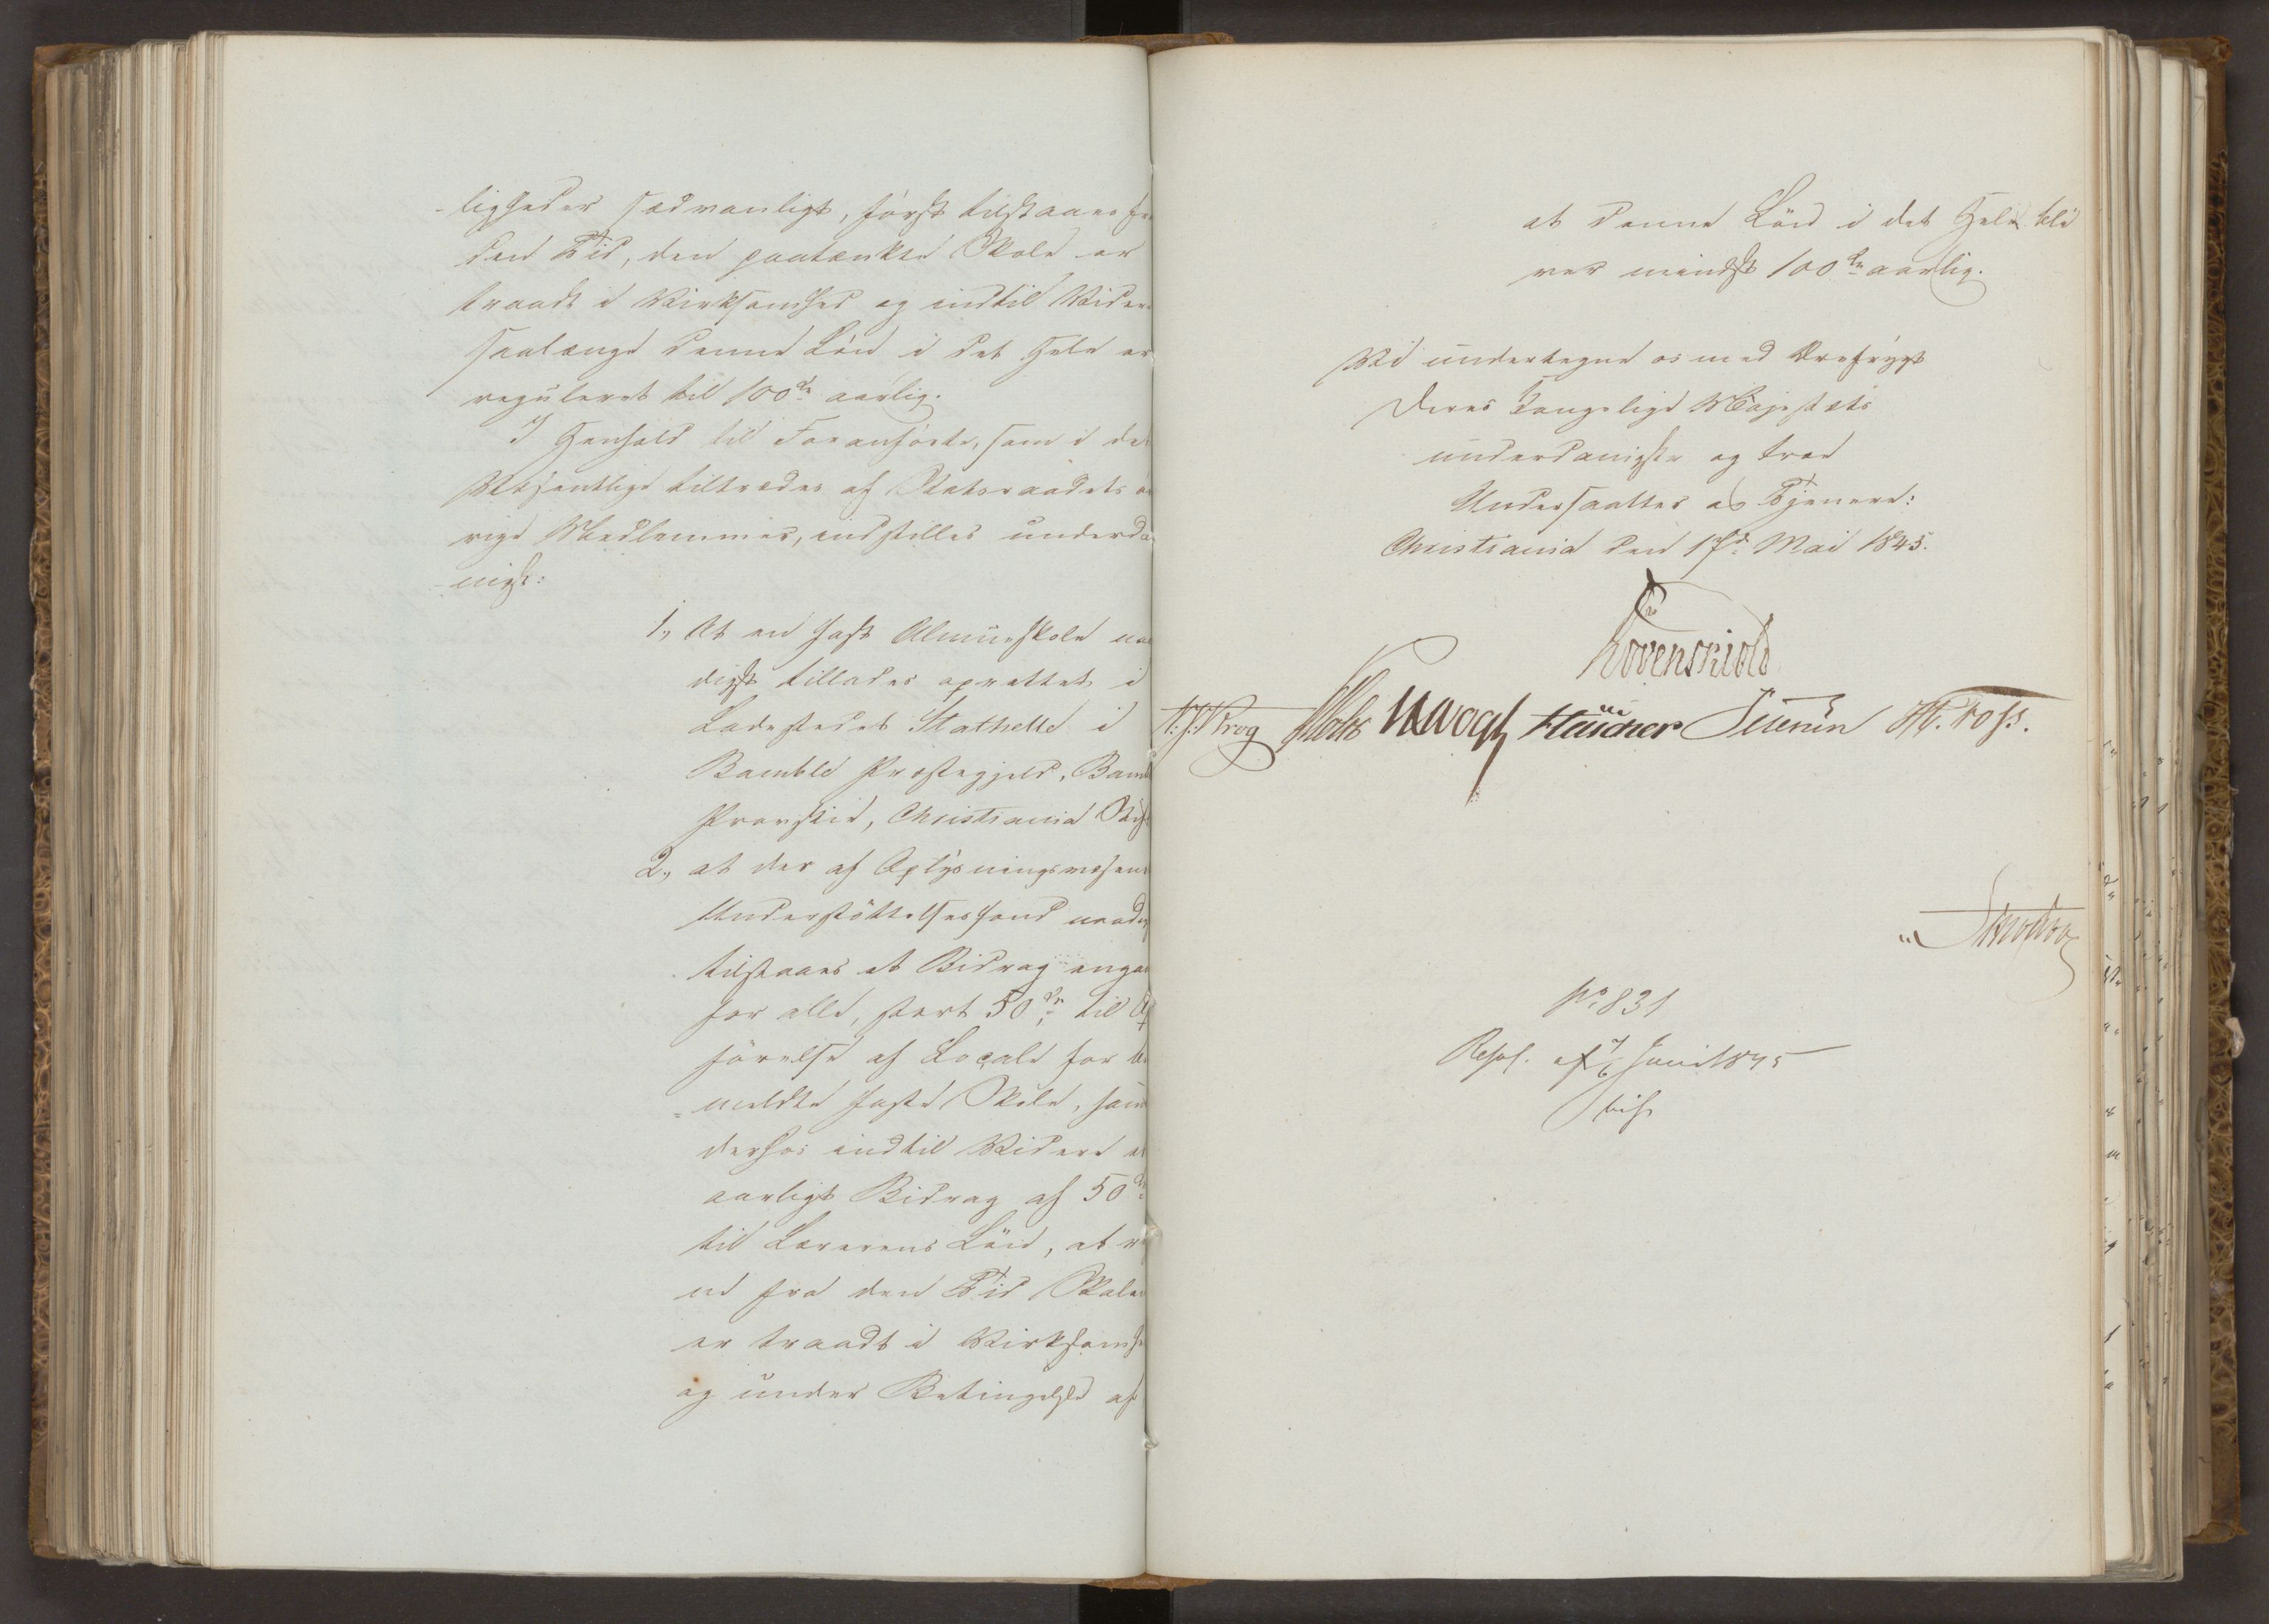 -ligheder sædvanligt, først tilstaaes fra
den Tid, den paatænkte Skole er
traadt i Virksomhed og indtil Videre
saalænge denne Løn i det Hele er
reguleret til 100 dr aarlig.
I Henhold til Foranførte, som i det
Væsentlige tiltrædes af Statsraadets ø
rige Medlemmer, indstilles underda
-nigst:
1., At en fast Almueskole naa
digst tillades oprettet i
Ladestedet Stathelle i
Bamble Præstegjeld, Bamb
Provstie, Christiania Stift
2., at der af Oplysningsvæsenets
Understøttelsesfond naadig
tilstaaes et Bidrag engan
for alle, stort 50 dr, til Op
førelse af Locale for be
-meldte faste Skole, samt
derhos indtil Videre et
aarligt Bidrag af 50 dr
til Lærerens Løn, at reg
ne fra den Tid Skolen
er traadt i Virksomhed
og under Betingelse af
at denne Løn i det Hele bli
ver mindst 100 dr aarlig.
Vi undertegne os med Ærefrygt
Deres Kongelige Majestæts
underdanigste og troe
Undersaatter og Tjenere:
Christiania den 17d Mai 1845.
Løvenskiold
N. J. Krog Holst JHVogt Fleischer Petersen H. Foss.
No 831
Resol. af 7/6 Juni 1845